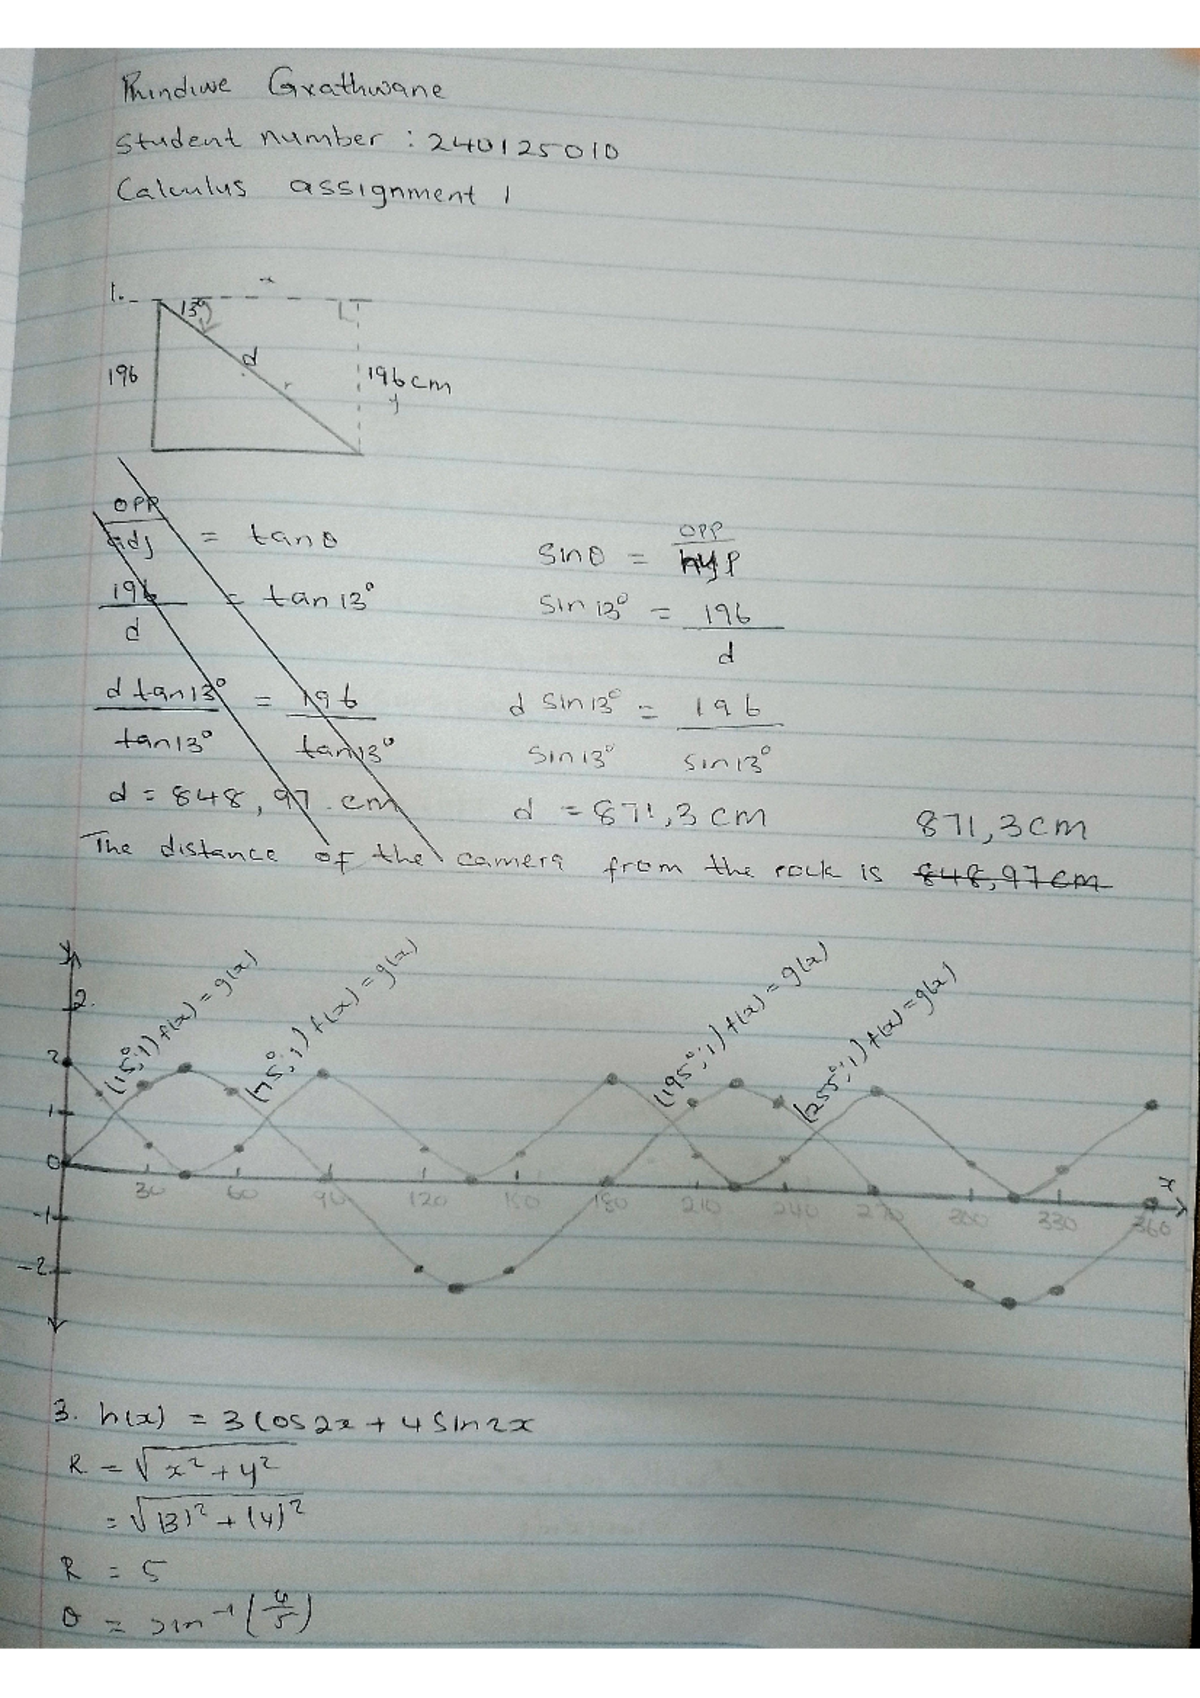 Phindiwe Gxathwane
Student number : 240125010
Calculus assignment 1
1.
x
13°
196
d
r
196 cm
y
opp/adj = tan θ
196/d = tan 13°
d tan 13°/tan 13° = 196/tan 13°
d = 848,97 cm
sin θ = opp/hyp
sin 13° = 196/d
d sin 13°/sin 13° = 196/sin 13°
d = 871,3 cm
871,3 cm
The distance of the camera from the rock is 848,97 cm
y
2.
(15°;1) f(x) = g(x)
(75°;1) f(x) = g(x)
(195°;1) f(x) = g(x)
(255°;1) f(x) = g(x)
2
1
0
-1
-2
30 60 90 120 150 180 210 240 270 300 330 360
x
3. h(x) = 3 cos 2x + 4 sin 2x
R = √x² + y²
= √(3)² + (4)²
R = 5
θ = sin⁻¹ (4/5)